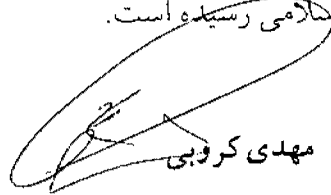 سلامی رسیده است.
مهدی کروبی